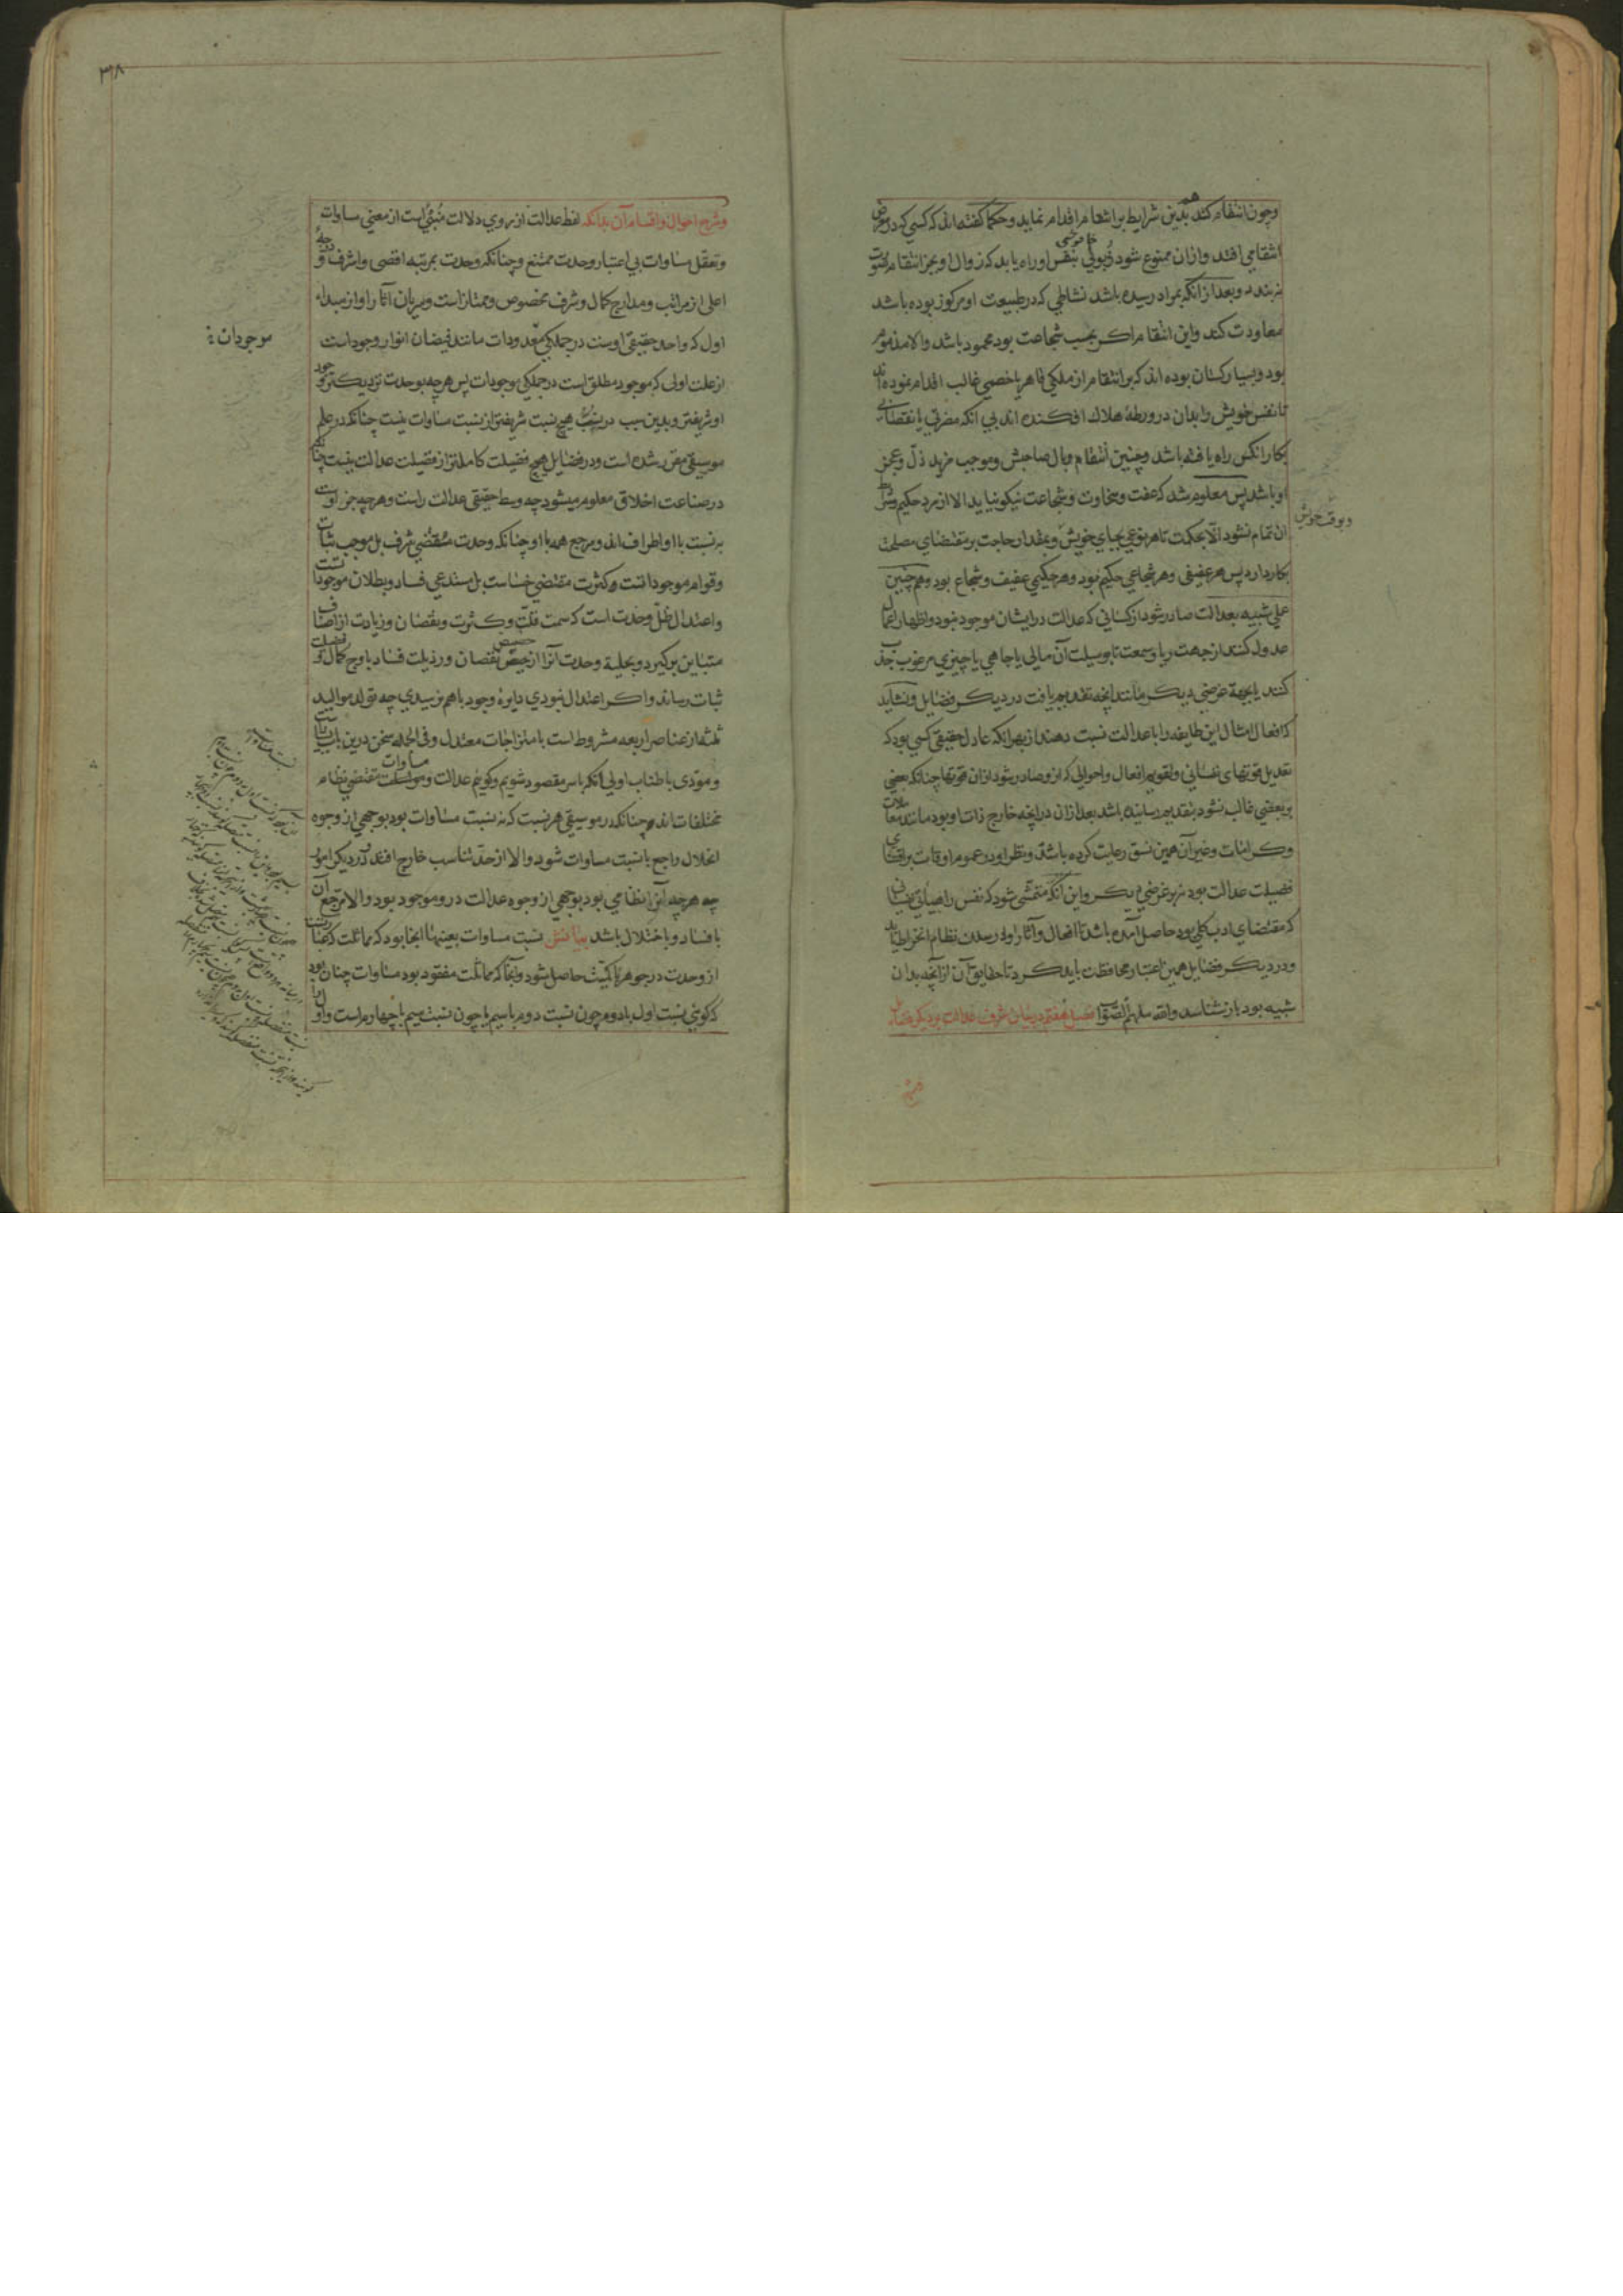 وچون انتقام کند هم بدین شرایط بر انتقام اقدام نماید وحکما گفته‌اند که کسی که در معرض
انتقامی افتد وازان ممنوع شود ذبولی بنفس او راه یابد که زوال او بجز انتقام صورت
نبندد وبعد از انکه بمراد رسیده باشد نشاطی که در طبیعت او مرکوز بوده باشد
معاودت کند واین انتقام اکر بحسب شجاعت بود محمود باشد والا مذموم
بود وبسیار کسان بوده اند که بر انتقام از ملکی قاهر یا خصمی غالب اقدام نموده اند
تا نفس خویش را بدان در ورطهٔ هلاک افکنده اند بی انکه مضرتی یا نقصانی
بکار انکس راه یافته باشد وچنین انتقام وبال صاحبش وموجب مزید ذل وعجز
او باشد پس معلوم شد که عفت وسخاوت وشجاعت نیکو نیاید الا از مرد حکیم وشرایط
ان تمام نشود الا بحکمت تا هر نوعی بجای خویش وبمقدار حاجت بر مقتضای مصلحت
وبوقت خویش
بکار دارد پس هر عفیفی وهر شجاعی حکیم بود وهر حکیمی عفیف وشجاع بود وهم چنین
عملی شبیه بعدالت صادر شود از کسانی که عدالت در ایشان موجود نبود واظهار اعمال
عدول کنند از جهت ریا وسمعت تا بوسیلت آن مالی یا جاهی یا چیزی مرغوب جذب
کنند یا بجهة غرضی دیکر مانند انچه تقدیم یافت در دیکر فضایل ونشاید
که افعال امثال این طایفه را با عدالت نسبت دهند از بهر انکه عادل حقیقی کسی بود که
تعدیل قوتهای نفسانی وتقویم افعال واحوالی که از و صادر شود ازان قوتها چنانکه بعضی
بر بعضی غالب نشود بتقدیم رسانیده باشد بعد ازان در انچه خارج ذات او بود مانند معاملات
وکرامات وغیر آن همین نسق رعایت کرده باشد ونظر او در عموم اوقات بر اقتنای
فضیلت عدالت بود نه بر غرضی دیکر واین انکه متمشی شود که نفس را هیأتی نفسانی
که مقتضای ادب کلی بود حاصل آمده باشد تا افعال وآثار او در سلک نظام انخراط یابد
ودر دیکر فضایل همین اعتبار محافظت باید کرد تا حقایق آن از آنچه بدان
شبیه بود باز شناسد والله ملهم الصواب فصل هفتم در بیان شرف عدالت بر دیکر فضایل
٣٨
وشرح احوال واقسام آن بدانکه لفظ عدالت از روی دلالت منبئ است از معنی مساوات
وتعقل مساوات بی اعتبار وحدت ممتنع وچنانکه وحدت بمرتبه اقصی واشرف ودرجهٔ
اعلی از مراتب ومدارج کمال وشرف مخصوص وممتاز است وسریان آثار او از مبداء
اول که واحد حقیقی اوست در جملکی معدودات مانند فیضان انوار وجود است
موجودات
از علت اولی که موجود مطلق است در جملکی موجودات پس هرچه بوحدت نزدیکتر وجود
او شریفتر وبدین سبب در نسب هیچ نسبت شریفتر از نسبت مساوات نیست چنانکه در علم
موسیقی مقرر شده است ودر فضایل هیچ فضیلت کاملتر از فضیلت عدالت نیست چنانکه
در صناعت اخلاق معلوم میشود چه وسط حقیقی عدالت راست وهرچه جز اوست
بر نسبت با او اطراف اند ومرجع همه با او چنانکه وحدت مقتضی شرف بل موجب ثبات
وقوام موجودات است وکثرت مقتضی خساست بل مستدعی فساد وبطلان موجودات است
واعتدال ظل وحدت است که سمت قلت وکثرت ونقصان وزیادت از اصناف
متباین برکیرد وبحلیهٔ وحدت آنرا از حضیض نقصان ورذیلت فساد باوج کمال وفضیلت
ثبات رساند واکر اعتدال نبودی دایرهٔ وجود با هم نرسیدی چه تولد موالید
ثلثه از عناصر اربعه مشروط است بامتزاجات معتدل وفی الجمله سخن درین باب بسیارست
ومؤدی باطناب اولی آنکه با سر مقصود شویم وکوییم عدالت ومساوات مقتضی نظام
مختلفات اند وچنانکه در موسیقی هر نسبت که نه نسبت مساوات بود بوجهی از وجوه
انحلال راجع با نسبت مساوات شود والا از حد تناسب خارج افتد در دیکر امور
چه هرچه آنرا نظامی بود بوجهی از وجوه عدالت درو موجود بود والا مرجع آن
با فساد وبا اختلال باشد بیانش نسبت مساوات بعینها انجا بود که مماثلت که عبارتست
از وحدت در جوهر یا کمیت حاصل شود وآنجا که مماثلت مفقود بود مساوات چنان بود
که کویی نسبت اول با دوم چون نسبت دوم با سیم یا چون نسبت سیم با چهارم است واول را